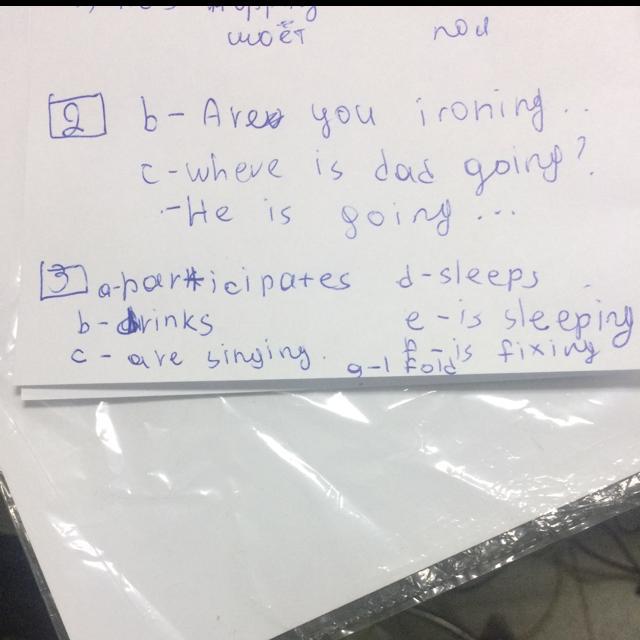 моет пол
2 b - Are you ironing...
c - where is dad going?
- He is going ...
3 a - participates d - sleeps
b - drinks e - is sleeping
c - are singing. f - is fixing
g - I fold